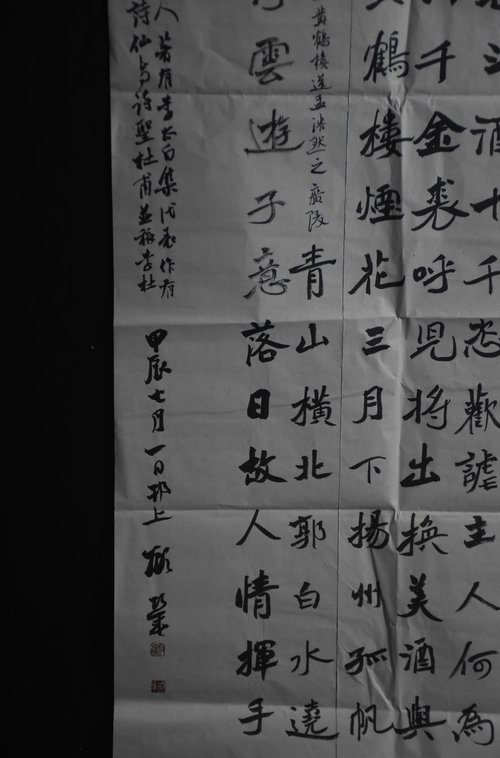 斗酒十千恣歡謔主人何為
千金裘呼兒將出換美酒與
鶴樓煙花三月下揚州孤帆
黃鶴樓送孟浩然之廣陵 青山橫北郭白水遶
雲遊子意落日故人情揮手
人 著有李太白集代表作有
詩仙与詩聖杜甫並稱李杜
甲辰七月一日邗上